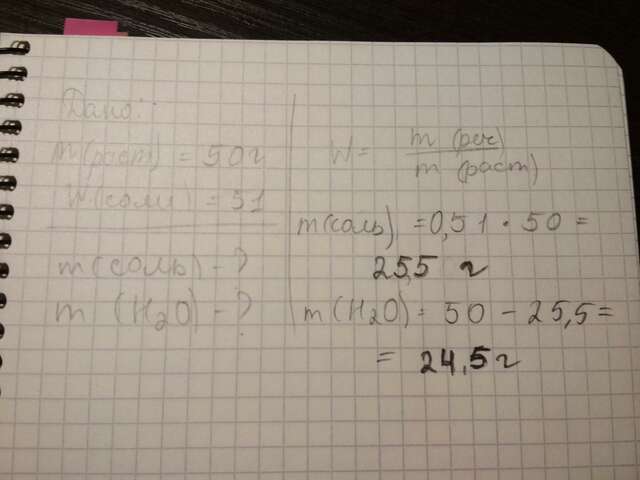 Дано:
m(раст) = 50г
W(соли) = 51
m(соль) - ?
m (H2O) - ?
W = m (реч) / m (раст)
m(соль) = 0,51 • 50 =
25,5 г
m(H2O) = 50 - 25,5 =
= 24,5г